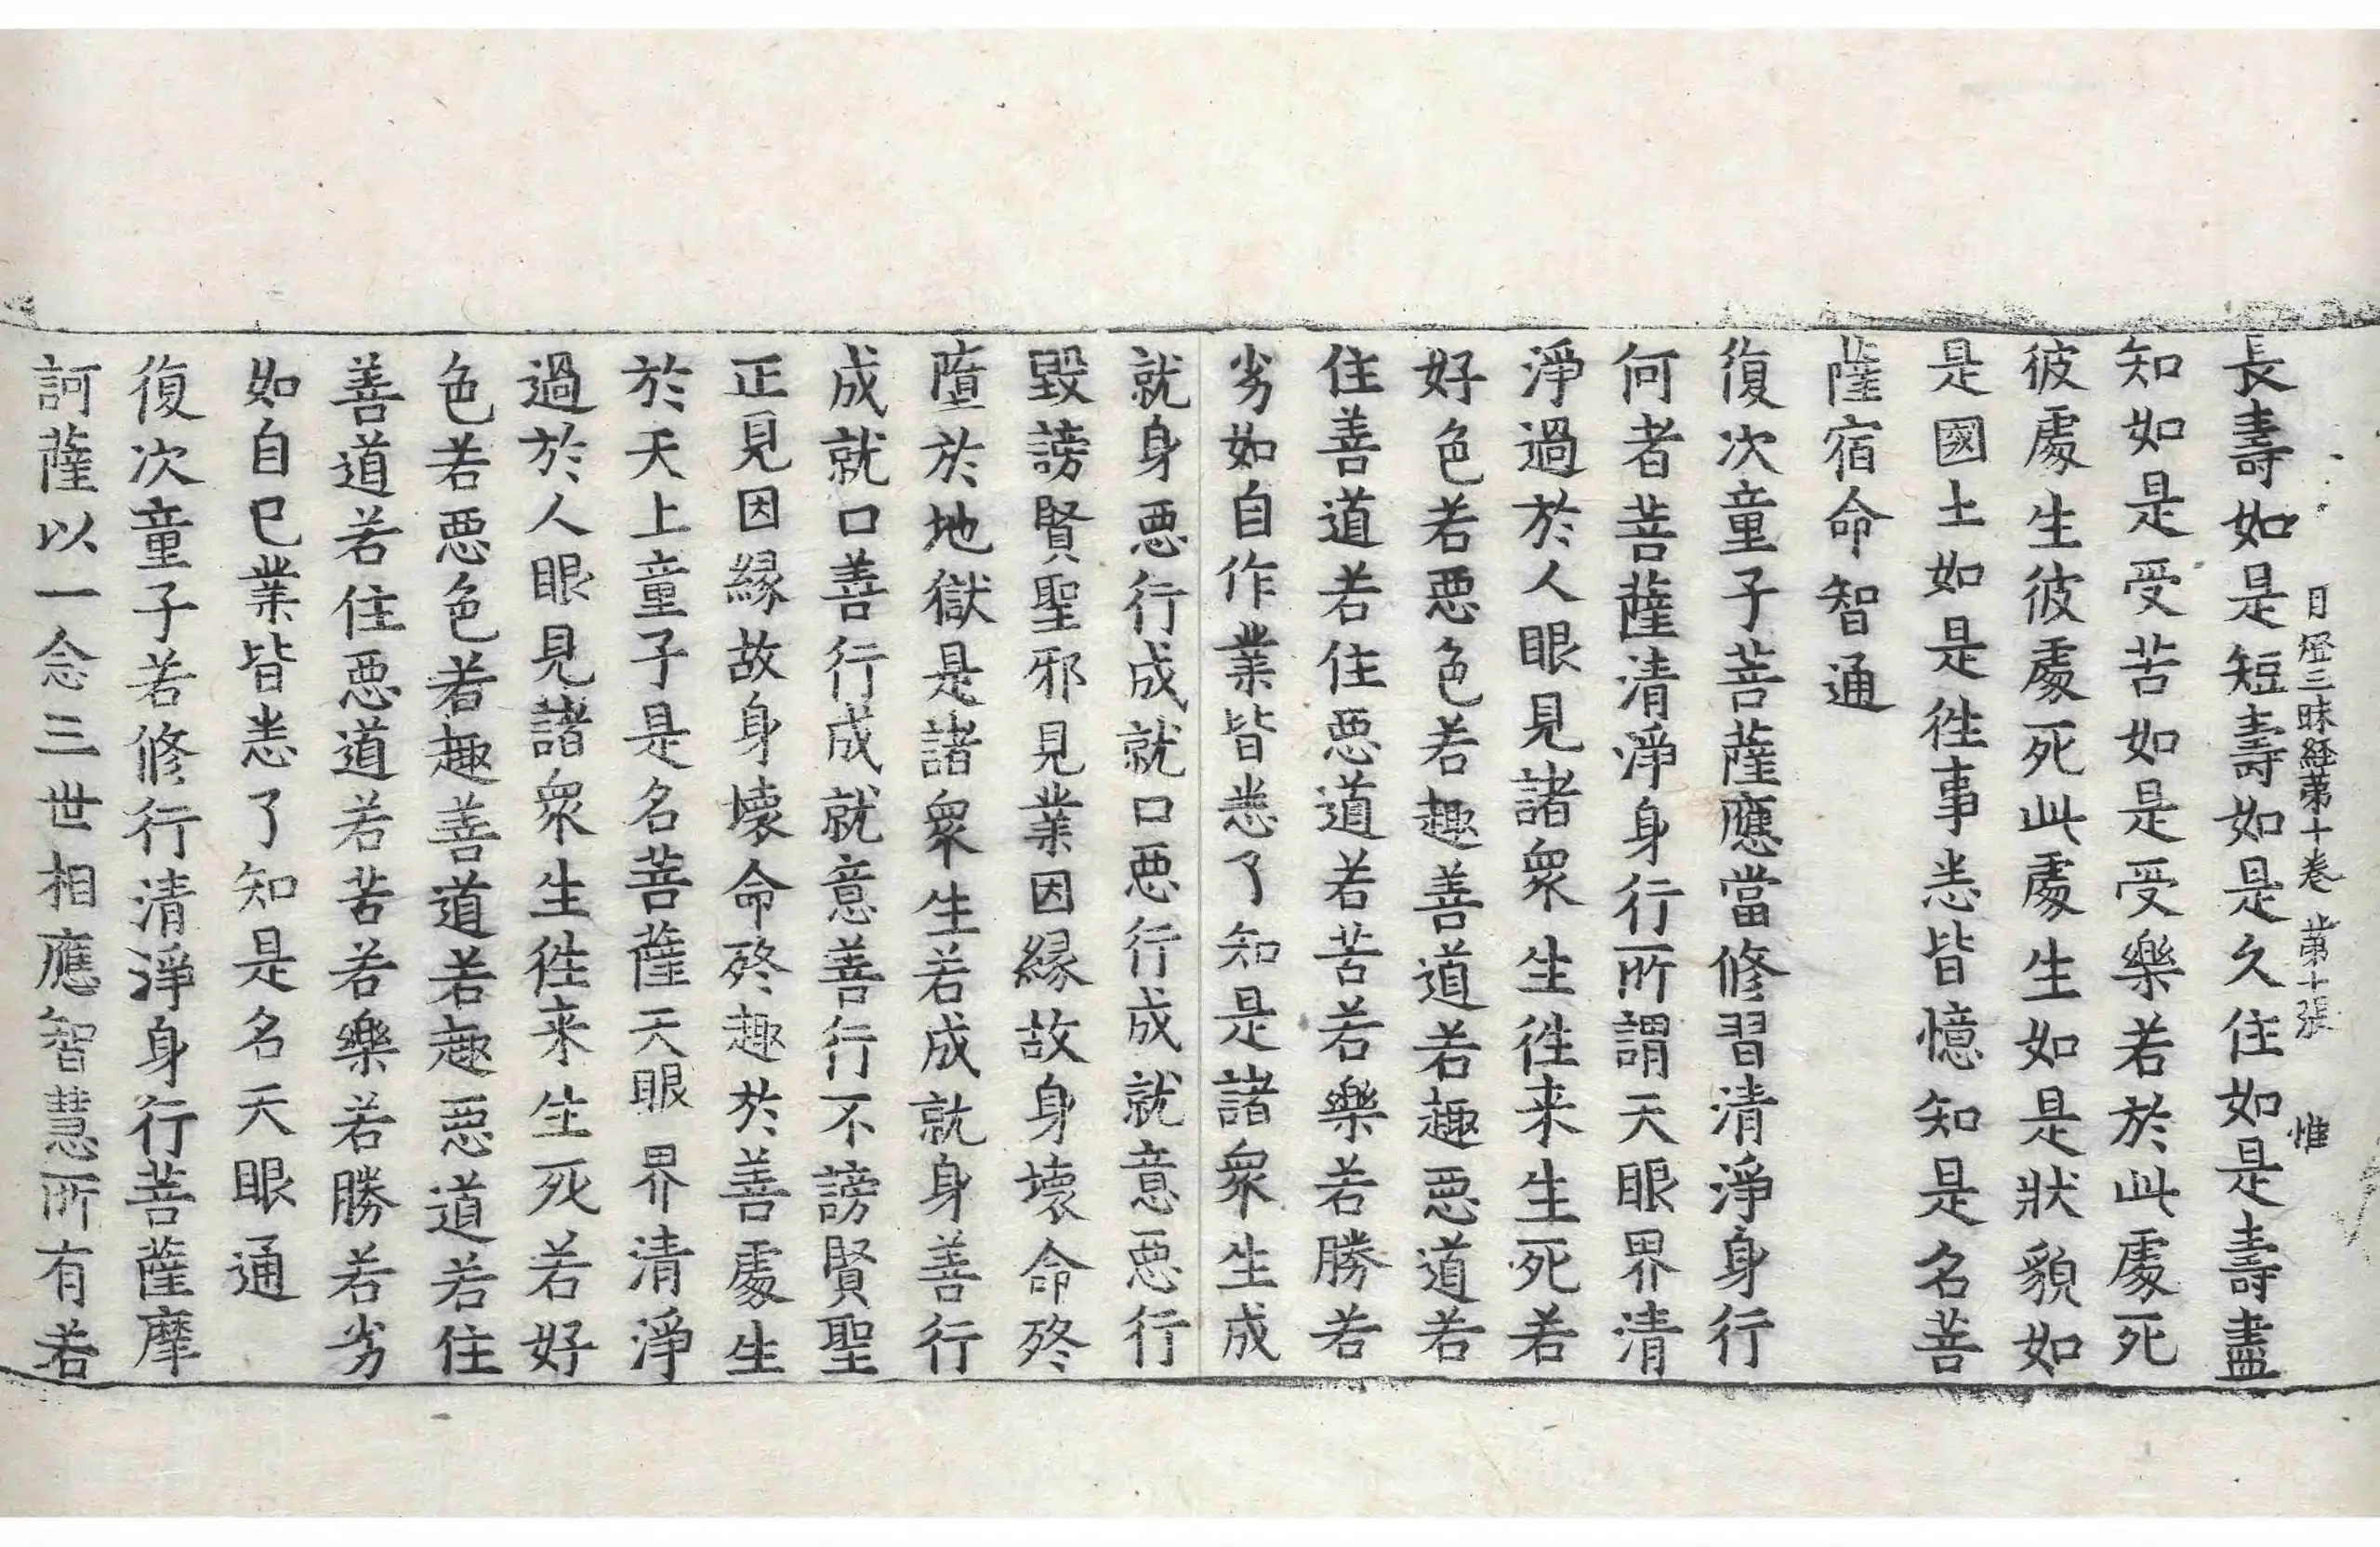 月燈三昧経苐十卷 苐十張 惟
長壽如是短壽如是久住如是壽盡
知如是受苦如是受樂若於此處死
彼處生彼處死此處生如是狀貌如
是國土如是徃事悉皆憶知是名菩
薩宿命智通
復次童子菩薩應當修習清淨身行
何者菩薩清淨身行所謂天眼界清
淨過於人眼見諸衆生徃来生死若
好色若惡色若趣善道若趣惡道若
住善道若住惡道若苦若樂若勝若
劣如自作業皆悉了知是諸衆生成
就身惡行成就口惡行成就意惡行
毀謗賢聖邪見業因縁故身壞命終
墮於地獄是諸衆生若成就身善行
成就口善行成就意善行不謗賢聖
正見因縁故身壞命終趣於善處生
於天上童子是名菩薩天眼界清淨
過於人眼見諸衆生徃来生死若好
色若惡色若趣善道若趣惡道若住
善道若住惡道若苦若樂若勝若劣
如自己業皆悉了知是名天眼通
復次童子若修行清淨身行菩薩摩
訶薩以一念三世相應智慧所有若